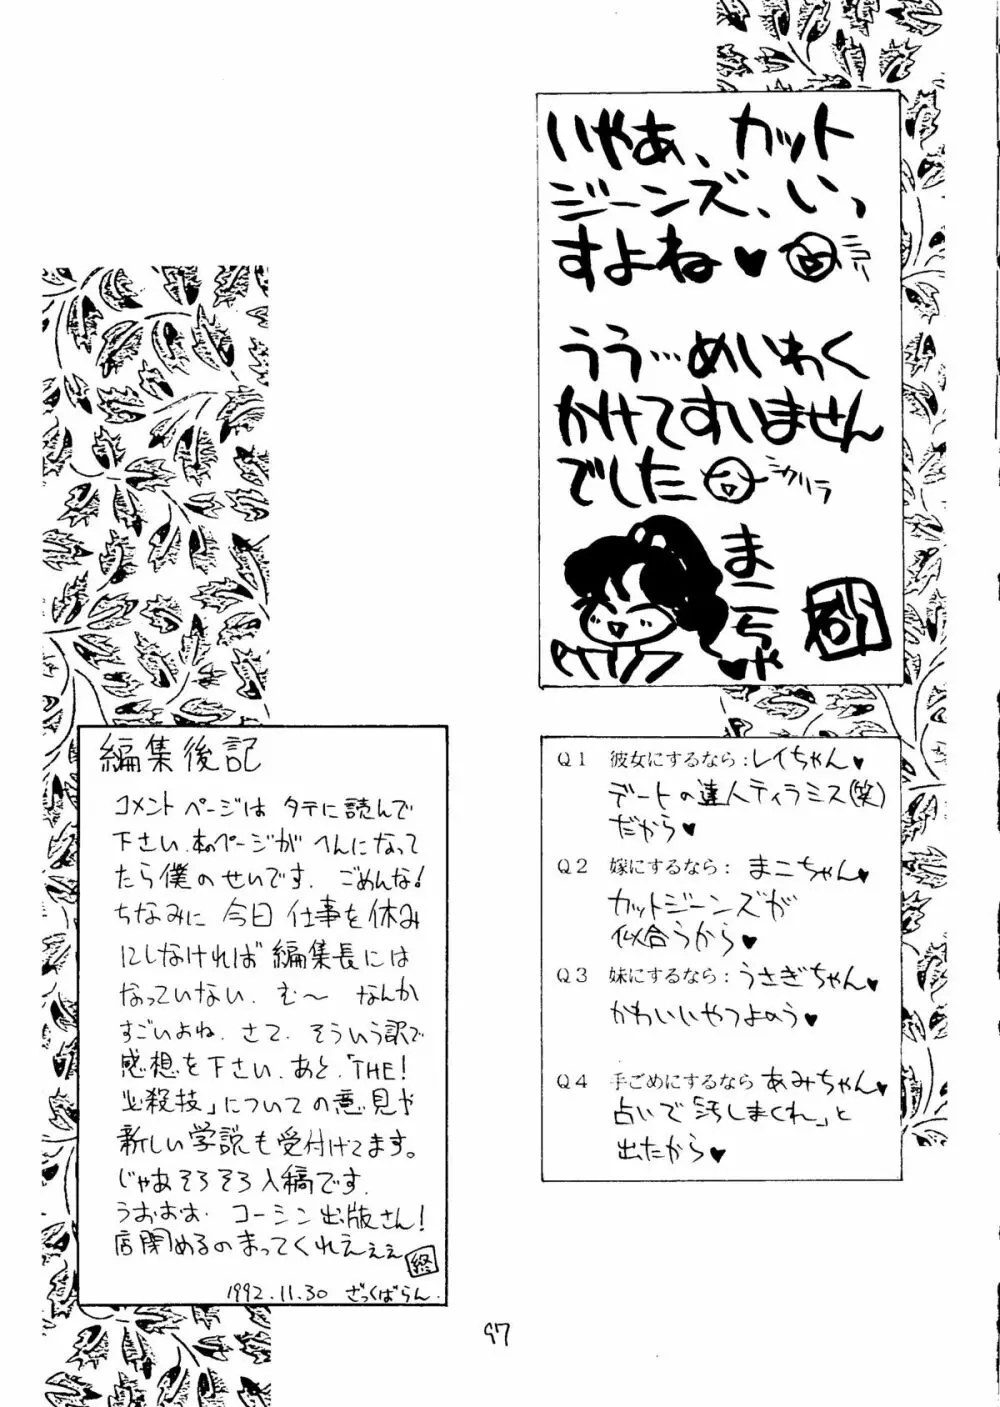 いやあ、カット
ジーンズ、いっ
すよね♥
うう…めいわく
かけてすいません
でした
まこちゃ
Q1 彼女にするなら：レイちゃん♥
デートの達人ティラミス(笑)
だから♥
Q2 嫁にするなら：まこちゃん♥
カットジーンズが
似合うから♥
Q3 妹にするなら：うさぎちゃん♥
かわいいやつよのう♥
Q4 手ごめにするなら あみちゃん♥
占いで「汚しまくれ」と
出たから♥
編集後記
コメントページはタテに読んで
下さい.本のページがへんになって
たら僕のせいです. ごめんな！
ちなみに今日仕事を休み
にしなければ編集長には
なっていない. む〜 なんか
すごいよね. さて. そういう訳で
感想を下さい.あと.「THE！
必殺技」についての意見や
新しい学説も受付けてます。
じゃあそろそろ入稿です.
うおおお. コーシン出版さん！
店閉めるのまってくれえぇぇ 終
1992.11.30 ざっくばらん.
97